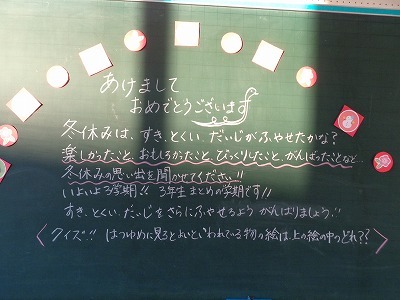 あけまして
おめでとうございます
冬休みは、すき、とくい、だいじがふやせたかな?
楽しかったこと、おもしろかったこと、びっくりしたこと、がんばったことなど…
冬休みの思い出を聞かせてください!!
いよいよ3学期!! 3年生まとめの学期です!!
すき、とくい、だいじをさらにふやせるようがんばりましょう!!
<クイズ!! はつゆめに見るとよいといわれている物の絵は、上の絵の中のどれ??>